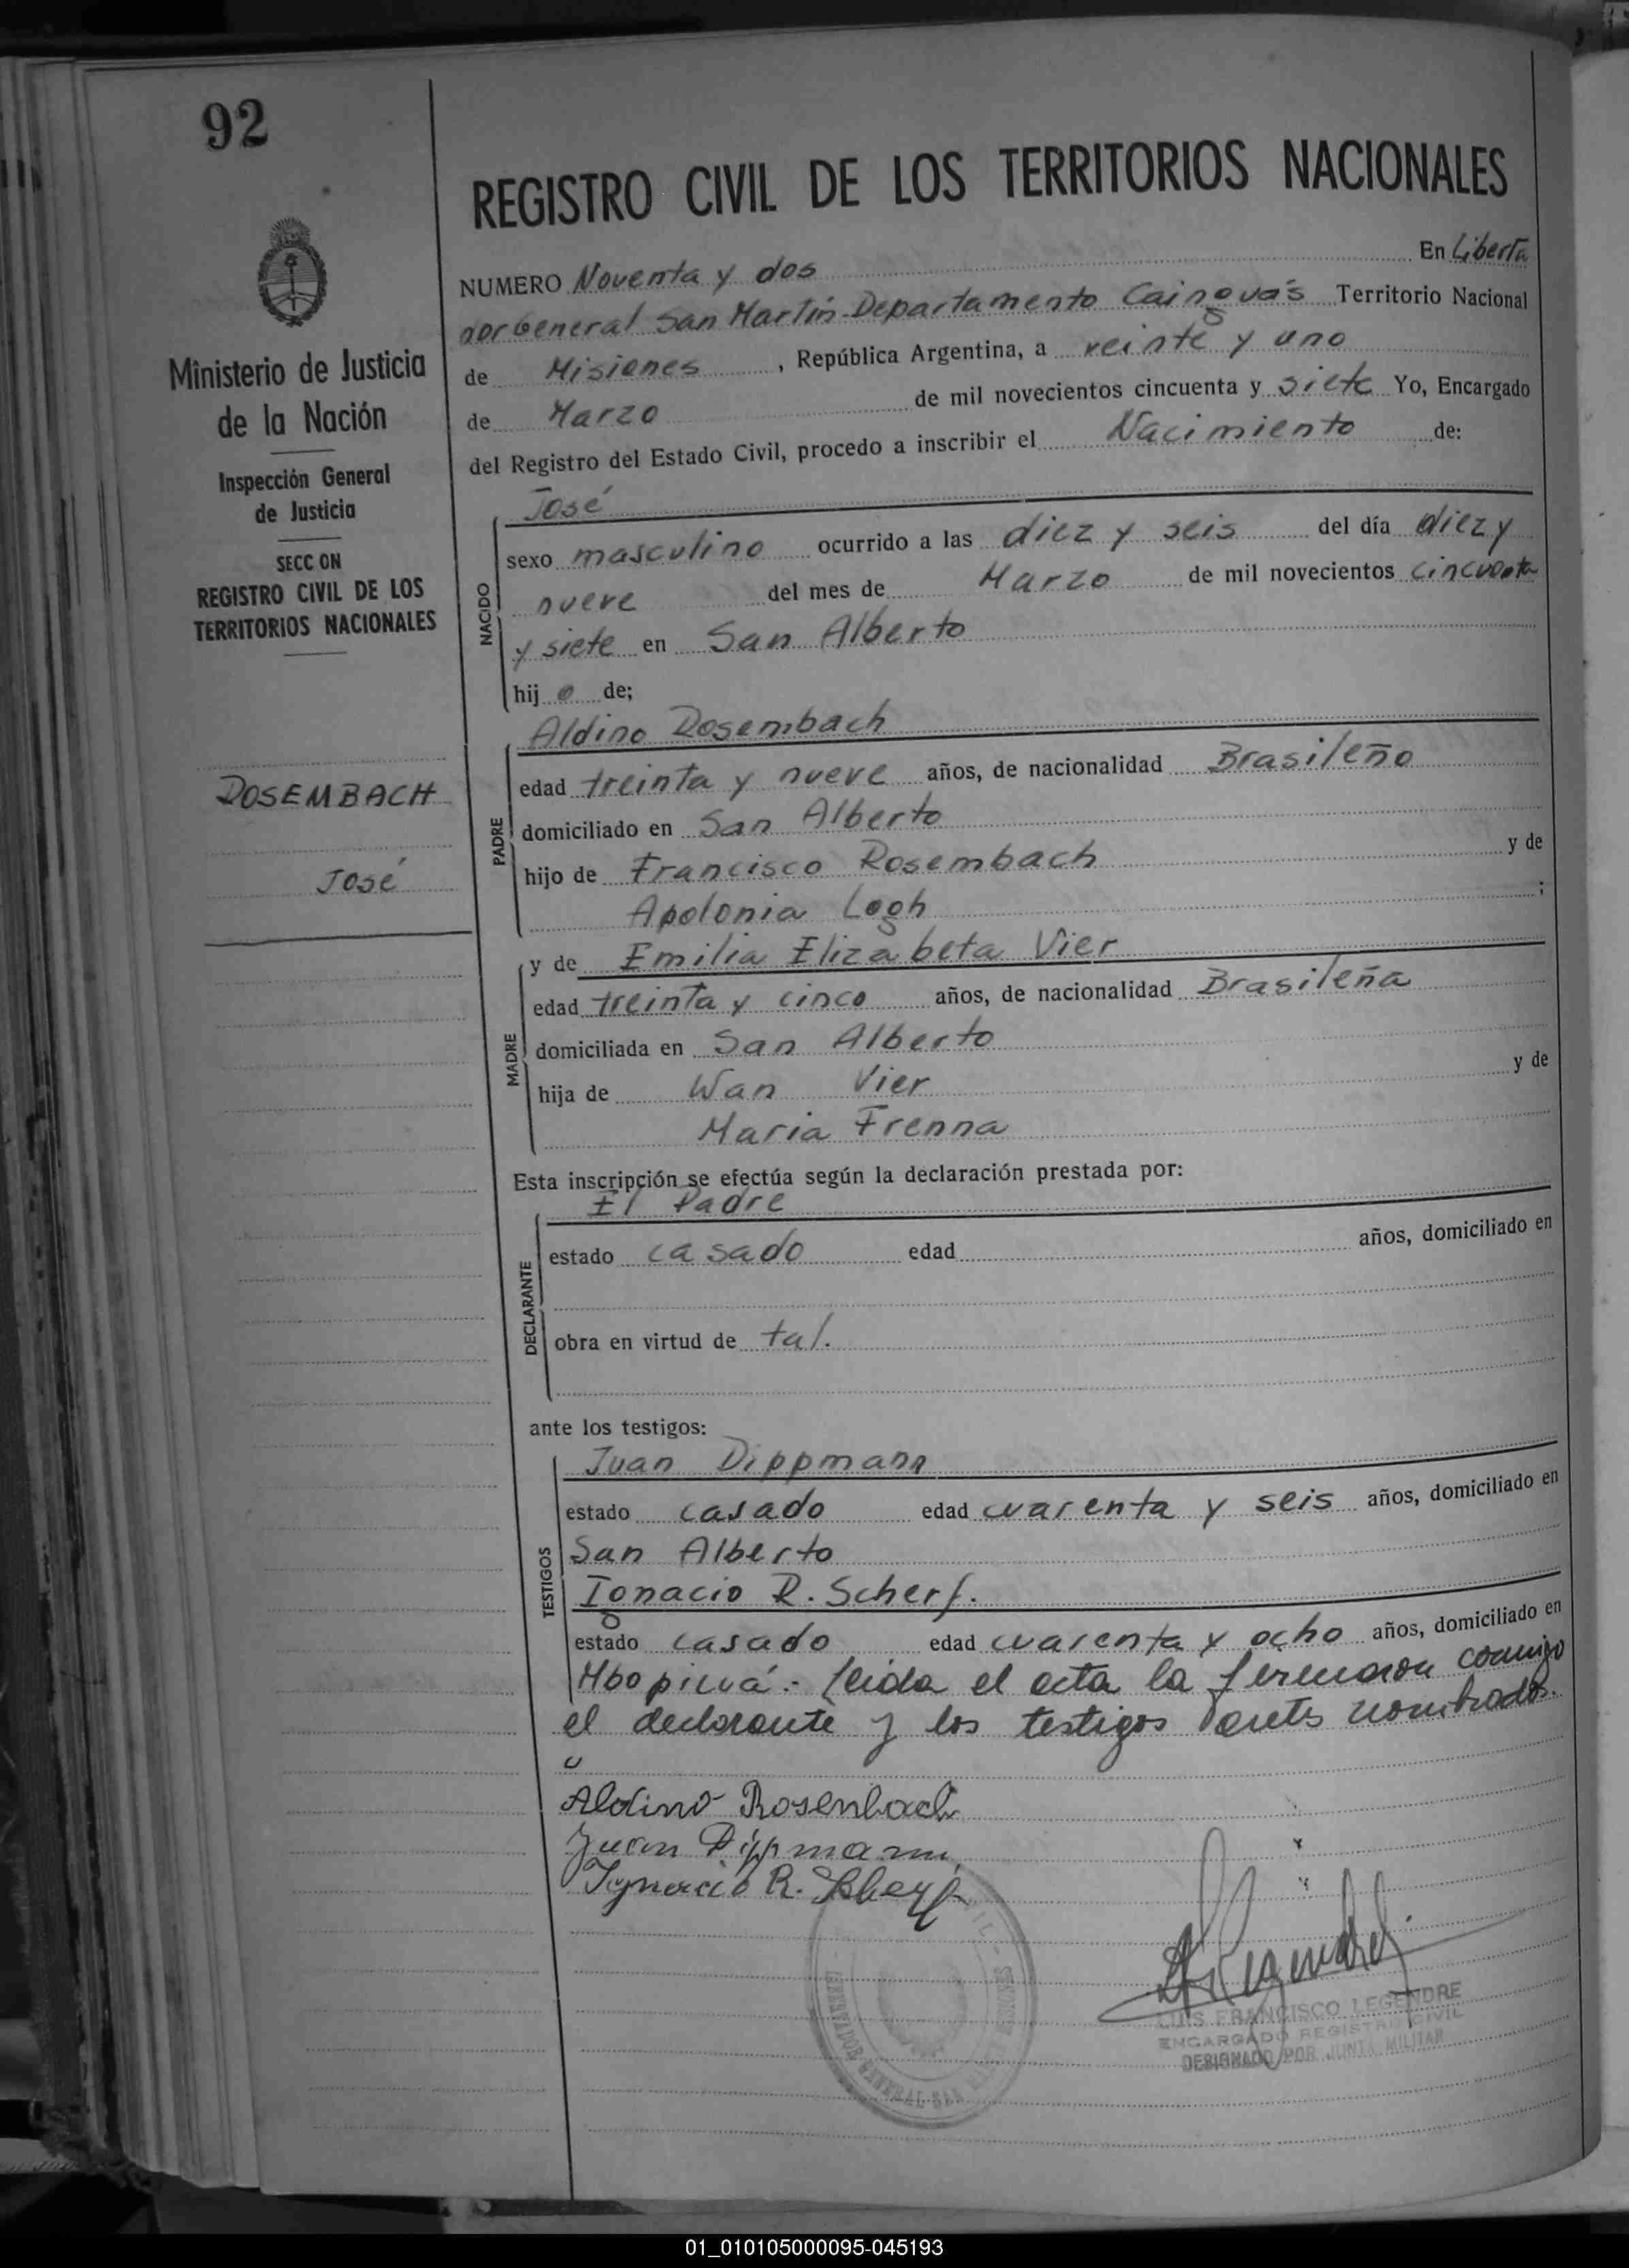 92
Ministerio de Justicia
de la Nación
Inspección General
de Justicia
SECC ON
REGISTRO CIVIL DE LOS
TERRITORIOS NACIONALES
ROSEMBACH
José
REGISTRO CIVIL DE LOS TERRITORIOS NACIONALES
NUMERO Noventa y dos En Liberta
dor General San Martín-Departamento Cainguás Territorio Nacional
de Misiones , República Argentina, a veinte y uno
de Marzo de mil novecientos cincuenta y siete Yo, Encargado
del Registro del Estado Civil, procedo a inscribir el Nacimiento de:
NACIDO
José
sexo masculino ocurrido a las diez y seis del día diez y
nueve del mes de Marzo de mil novecientos cincuenta
y siete en San Alberto
hij o de;
PADRE
Aldino Rosembach
edad treinta y nueve años, de nacionalidad Brasileño
domiciliado en San Alberto
hijo de Francisco Rosembach y de
Apolonia Logh ;
MADRE
y de Emilia Elizabeta Vier
edad treinta y cinco años, de nacionalidad Brasileña
domiciliada en San Alberto
hija de Wan Vier y de
Maria Frenna
Esta inscripción se efectúa según la declaración prestada por:
DECLARANTE
El Padre
estado casado edad años, domiciliado en
obra en virtud de tal.
ante los testigos:
TESTIGOS
Juan Dippmann
estado casado edad cuarenta y seis años, domiciliado en
San Alberto
Ignacio R. Scherf.
estado casado edad cuarenta y ocho años, domiciliado en
Mbopicuá.- Leida el acta la firmaron conmigo
el declarante y los testigos antes nombrados.
Aldino Rosenbach
Juan Dippmann
Ignacio R. Scherf
LUIS FRANCISCO LEGENDRE
ENCARGADO REGISTRO CIVIL
DESIGNADO POR JUNTA MILITAR
LIBERTADOR GENERAL SAN
01_010105000095-045193